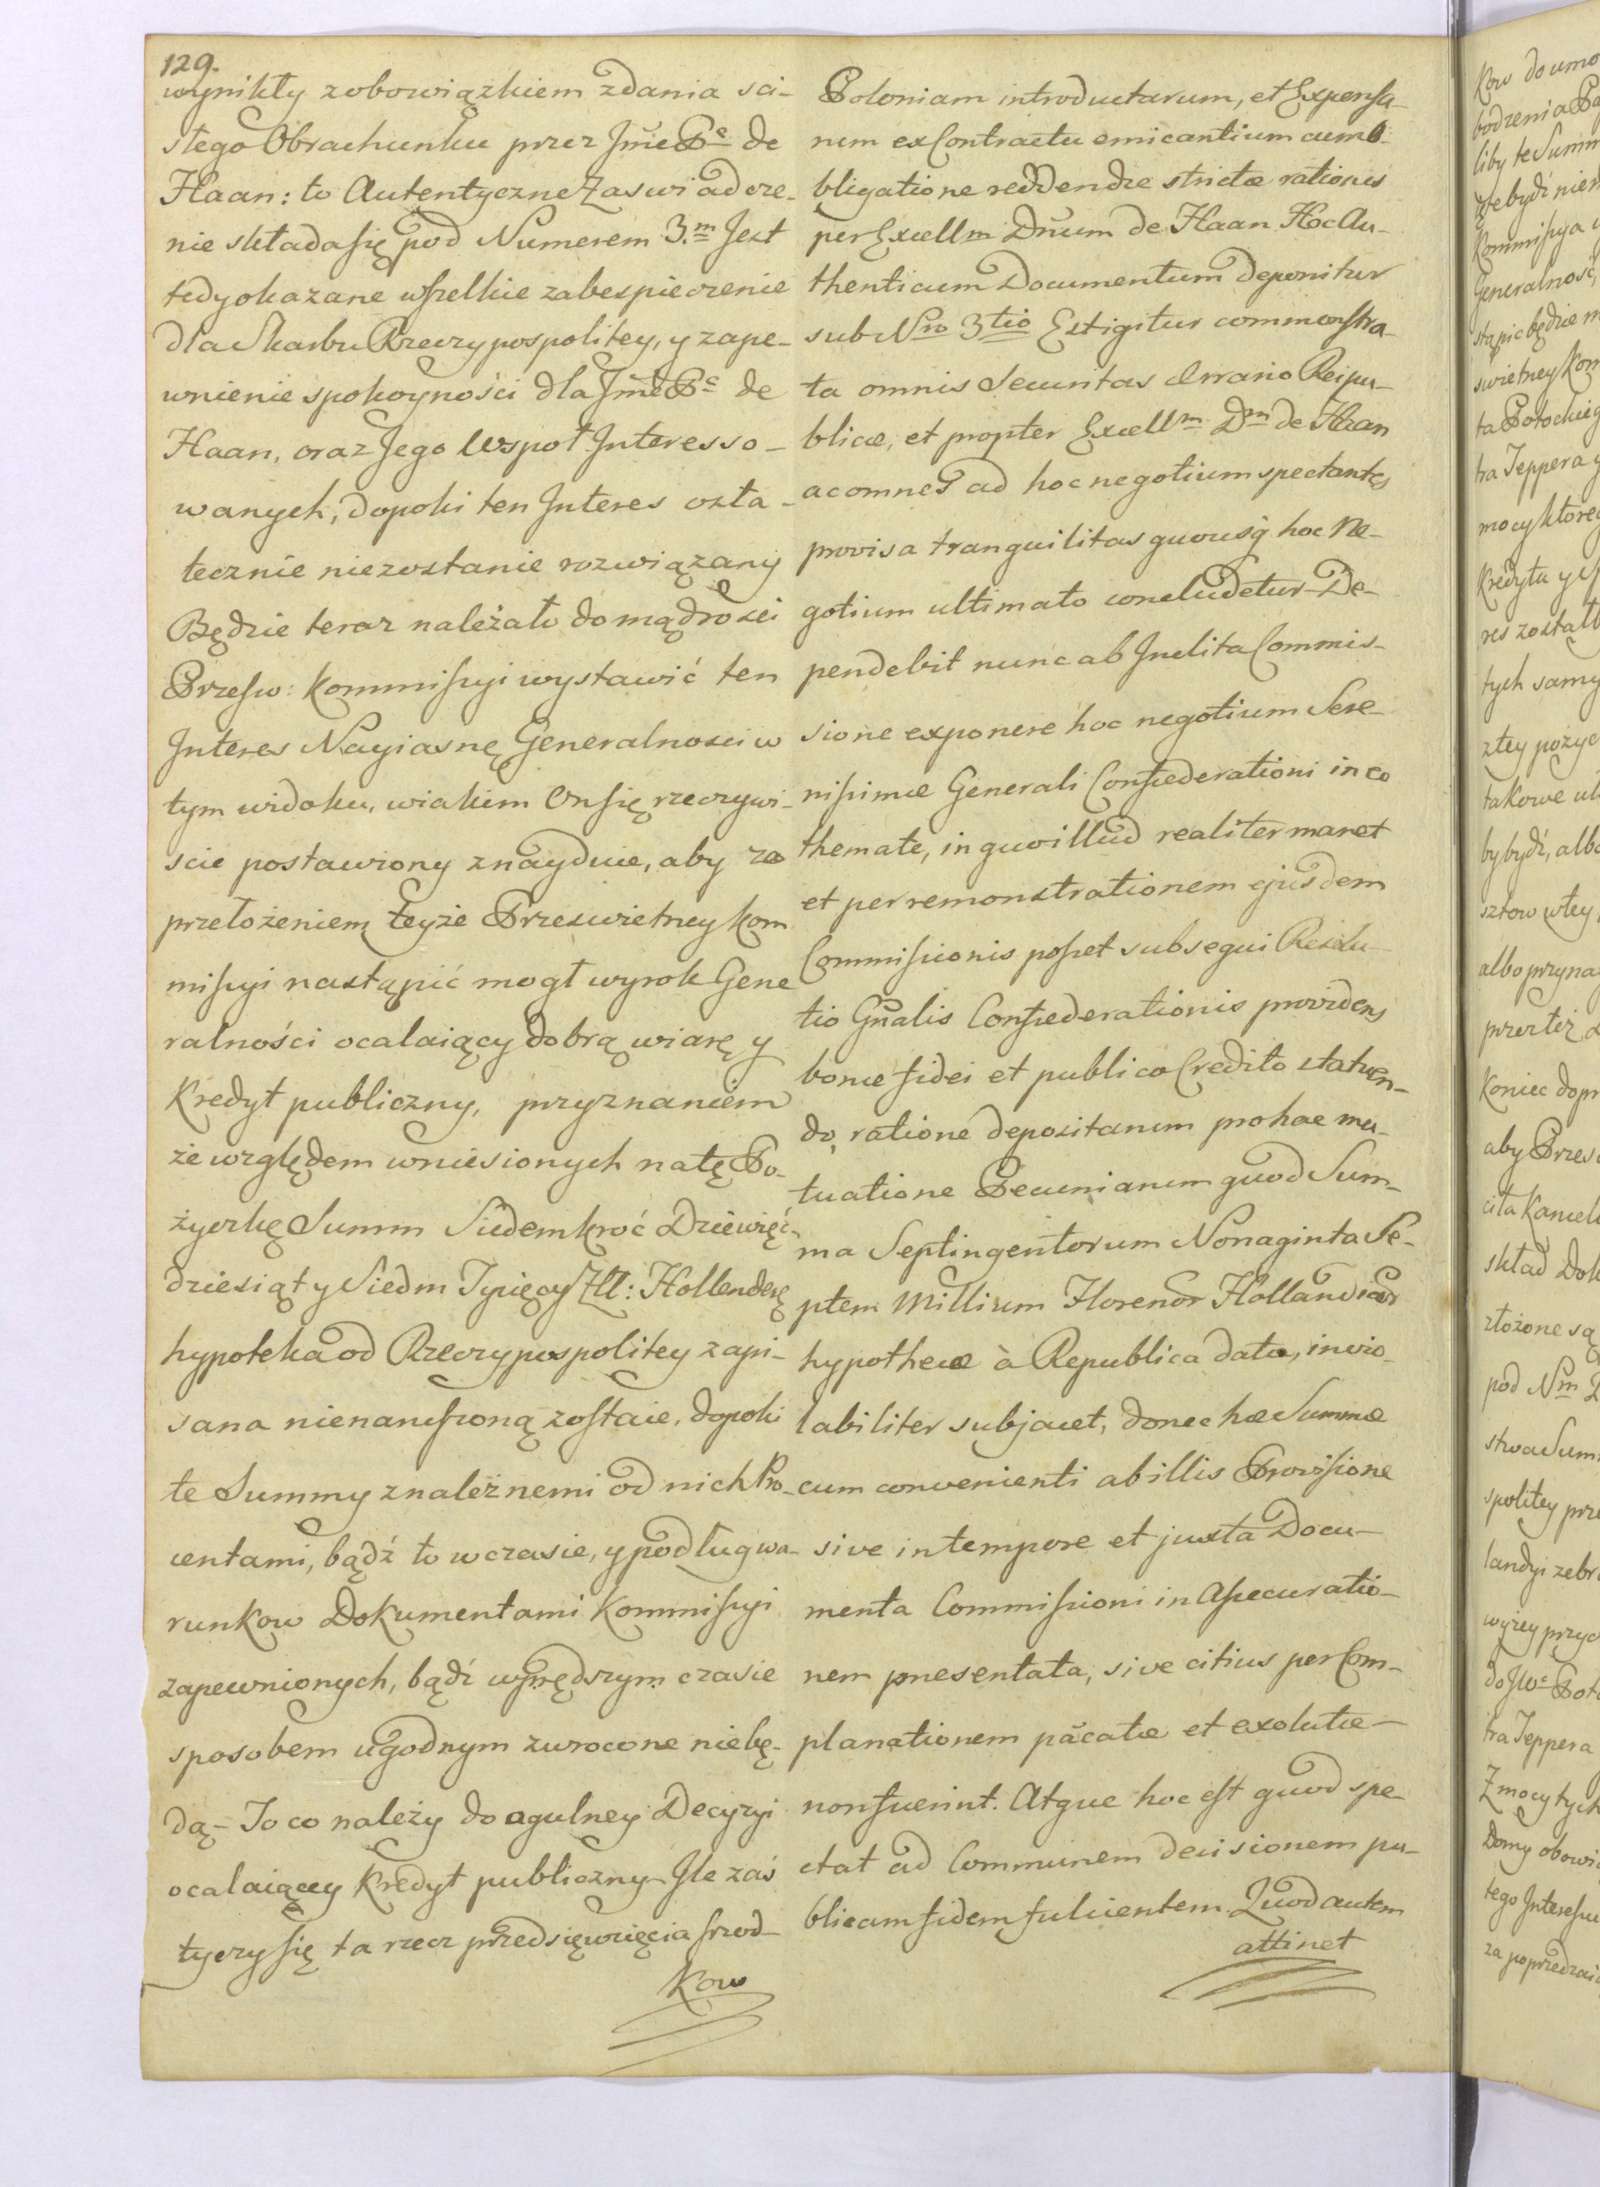 129.
wynikły z obowiązkiem zdania sci-
słego Obrachunku przez Jmć Pa de
Haan: to Autentyczne Zaswiadcze-
nie składa się pod Numerem 3.m Jest
tedy okazane wszelkie zabespieczenie
dla Skarbu Rzeczypospolitey, y zape-
wnienie spokoyności dla Jmć Pa de
Haan, oraz Jego Wspoł Interesso-
wanych, dopoki ten Interes osta-
tecznie niezostanie rozwiązany
Będzie teraz należało do mądrosci
Przesw: Kommissyi wystawić ten
Interes Nayiasnę Generalnosci w
tym widoku, w iakim On się rzeczywi-
scie postawiony znayduie, aby za
przełożeniem teyże Przeswietney Kom
missyi nastąpić mogł wyrok Gene
ralności ocalaiący dobrą wiarę y
Kredyt publiczny, przyznaniem
że względem wniesionych na tę Po-
życzkę Summ Siedemkroć Dziewięć-
dziesiąt y Siedm Tysięcy Złł: Hollender
hypoteka od Rzeczypospolitey zapi-
sana nienaruszoną zostaie, dopoki
te Summy z należnemi od nich Pro-
centami, bądź to w czasie, y podług wa-
runkow Dokumentami Kommissyi
zapewnionych, bądź w prędszym czasie
sposobem ugodnym zwrocone niebę-
dą - To co należy do ogulney Decyzyi
ocalaiącey Kredyt publiczny - Ile zaś
tyczy się ta rzecz przedsięwzięcia srzod-
Kow
Poloniam introductarum, et Expensa-
rum ex Contractu emicantium cum O-
bligatione reddendæ strictæ rationis
per Excellm Dnum de Haan Hoc Au-
thenticum Documentum deponitur
sub Nro 3tio Est igitur commonstra-
ta omnis Securitas Ærrario Reipu-
blicæ, et propter Excellm Dm de Haan
ac omnes ad hoc negotium spectantes
provisa tranquilitas quousq hoc Ne-
gotium ultimato concludetur - De-
pendebit nunc ab Inclita Commis-
sione exponere hoc negotium Sere-
nissimæ Generali Confœderationi in eo
themate, in quo illud realiter manet
et per remonstrationem ejusdem
Commissionis posset subsequi Resolu-
tio Gnalis Confœderationis providens
bonæ fidei et publico Credito statuen-
do, ratione depositarum pro hac mu-
tuatione Pecuniarum quod Sum-
ma Septingentorum Nonaginta Se-
ptem Millium Florenor Hollandicar
hypothecæ à Republica datæ, invio-
labiliter subjacet, donec hæ Summæ
cum convenienti ab illis Provisione
sive in tempore et juxta Docu-
menta Commissioni in Assecuratio-
nem præsentata, sive citius per Com-
planationem pacatæ et exolutæ
non fuerint. Atque hoc est quod spe-
ctat ad Communem decisionem pu-
blicam fidem fulcientem Quod autem
attinet
Kow do umo
liby te Summ
Generalność,
swietney Kom
ta Potockieg
tra Teppera y
mocy ktorey
Kredytu y
res został
tych samy
złey pożyc
takowe
by bydź, albo
albo przyna
przez też
Koniec dopr
aby Przes
skład Dok
złożone są
pod Nm
stwa Summ
spolitey prze
landyi zebr
wyżey przy
do JWo Poto
tra Teppera
Z mocy tych
Domy obowi
tego Interessu
za poprzedza